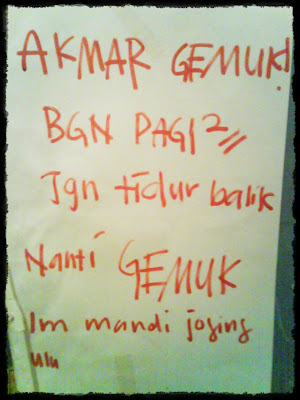 AKMAR GEMUK!
BGN PAGI2//
Jgn tidur balik
Nanti GEMUK
Im mandi joging
ulu